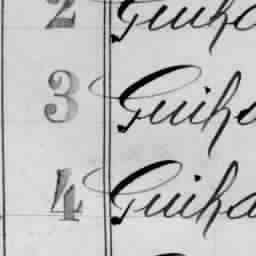 2 Guiha
3 Guiha
4 Guiha